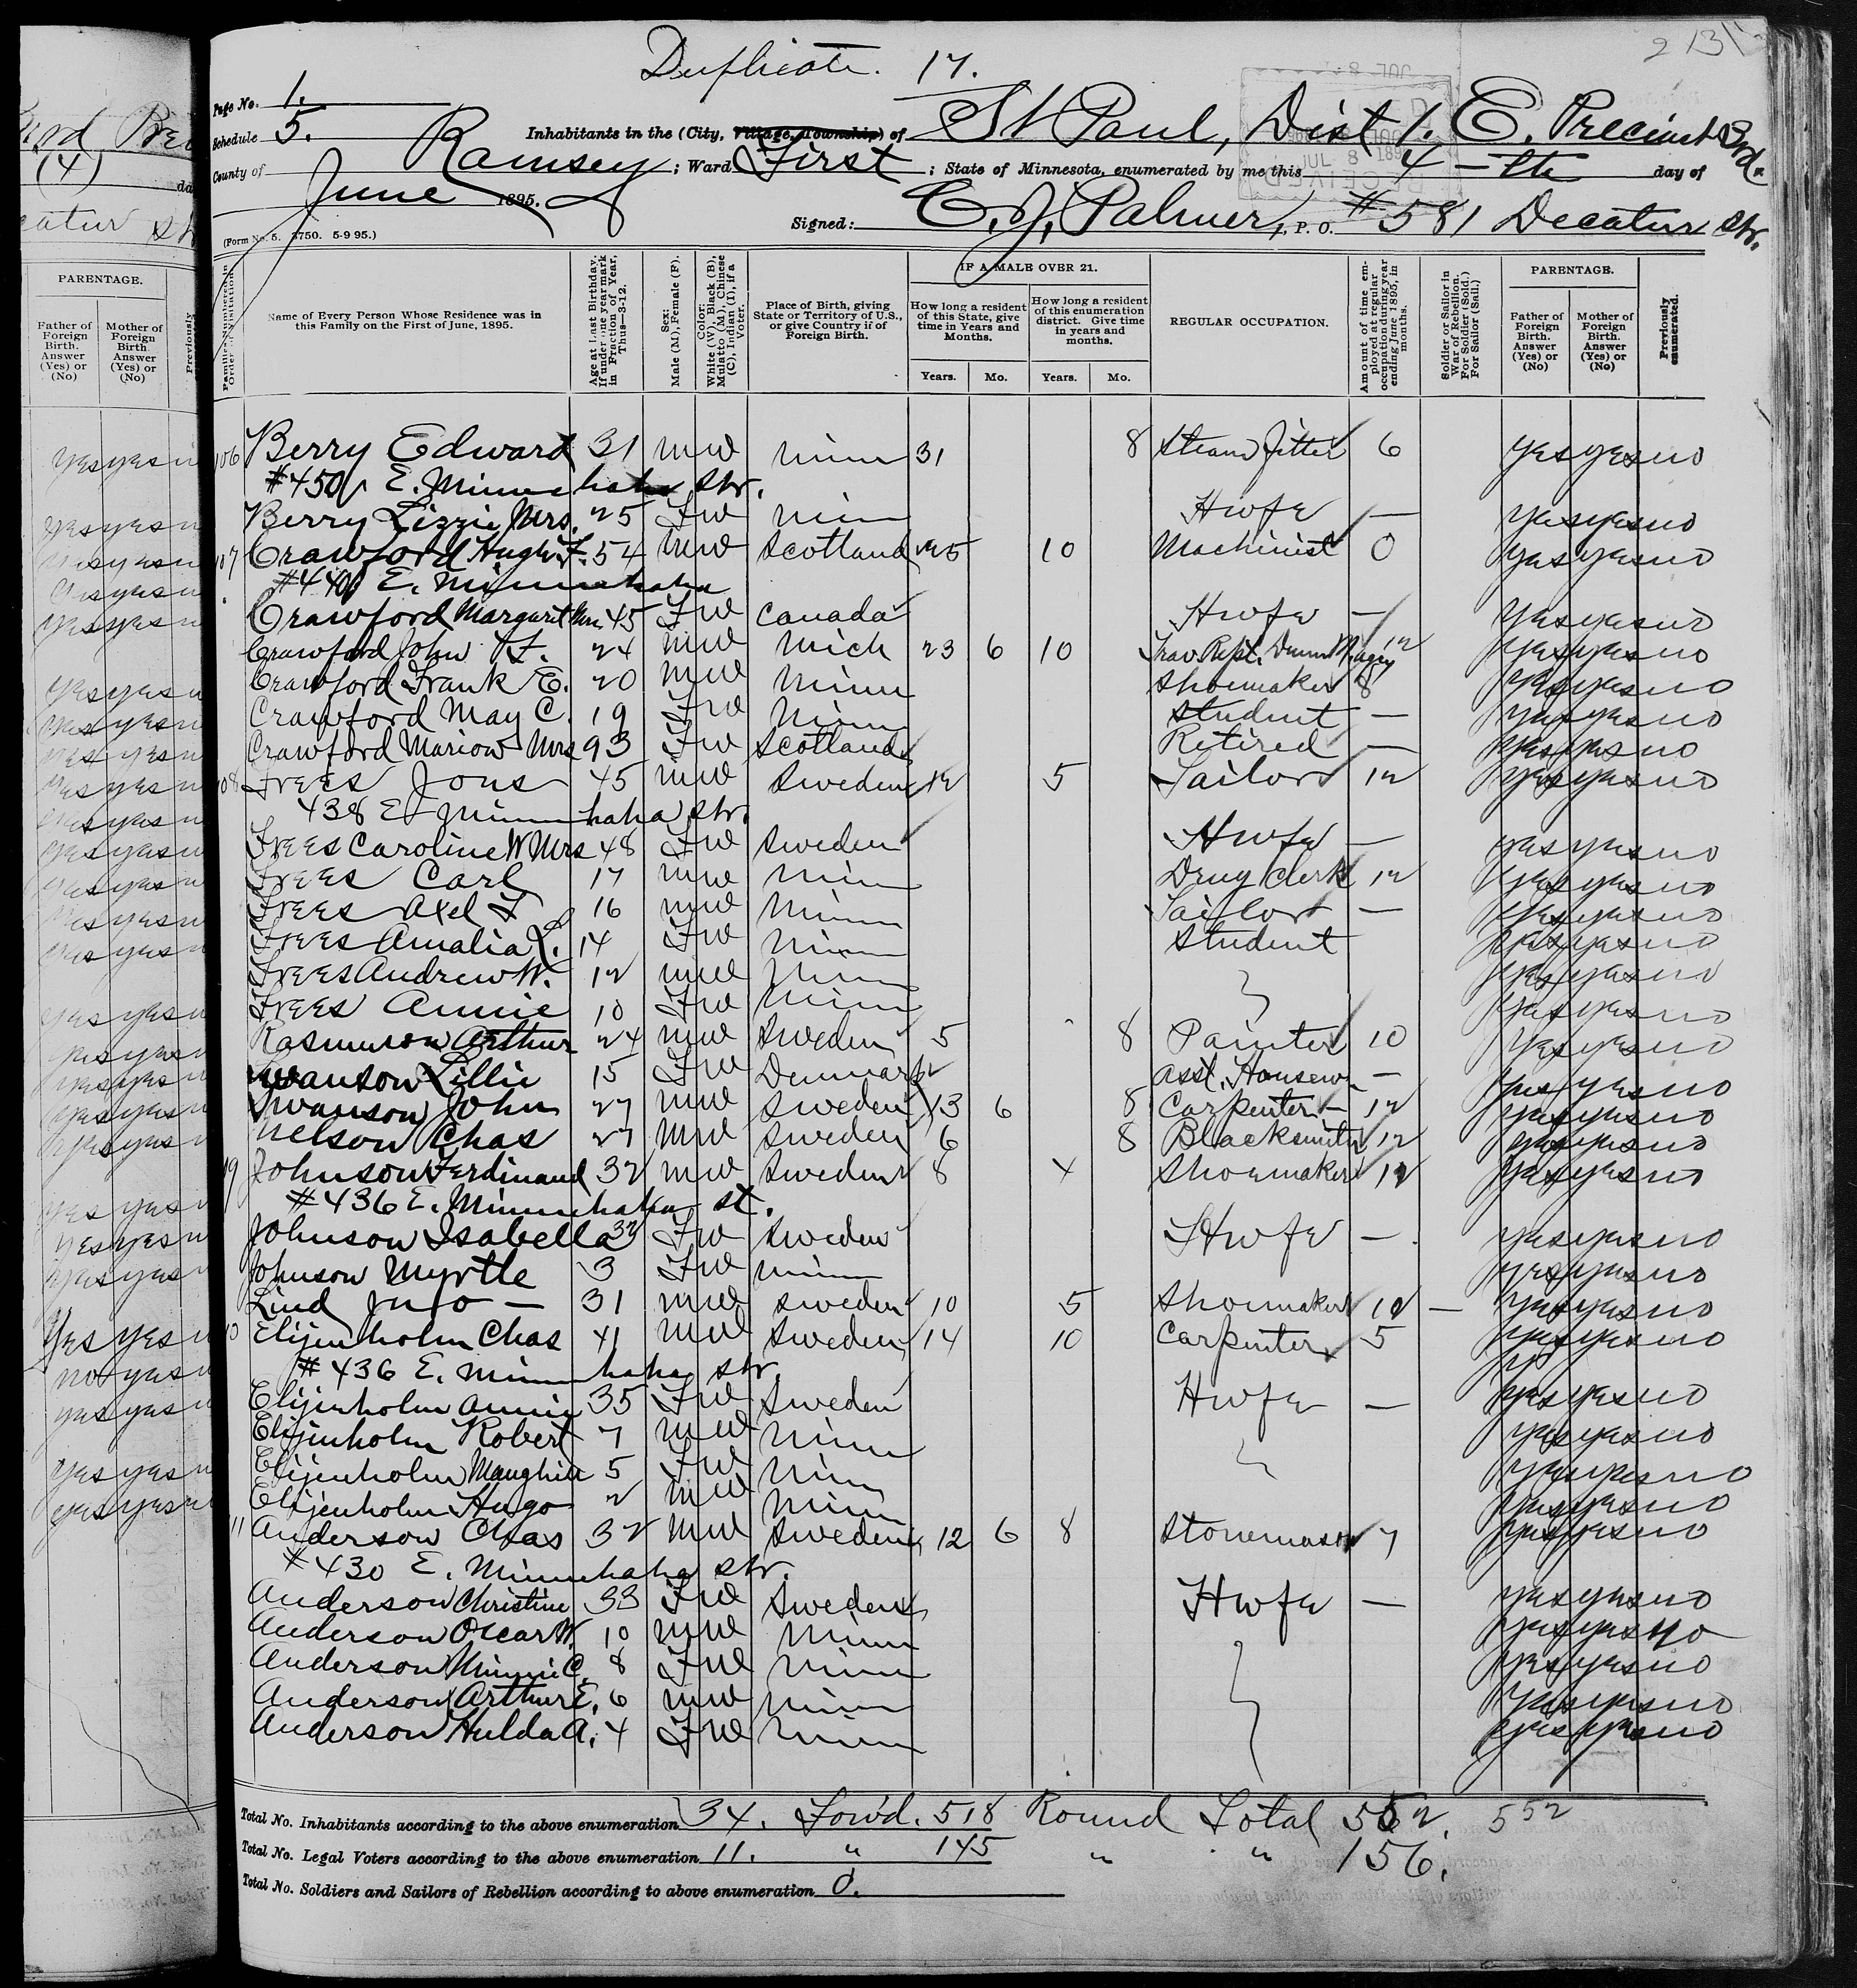 Duplicate. 17.
213
Page No. 1.
Schedule 5. Inhabitants in the (City, Village, Township) of St Paul, Dist 1. E. Precinct 3rd.
County of Ramsey; Ward First; State of Minnesota, enumerated by me this 4-th day of
June 1895.
RECEIVED JUL 8 189
Signed: C. J. Palmer, P. O. #581 Decatur Str.
(Form No. 5. 3750. 5-9 95.)
Families Numbered in Order of Visitation.
Name of Every Person Whose Residence was in this Family on the First of June, 1895.
Age at Last Birthday. If under one year mark in Fraction of Year, Thus—3-12.
Sex: Male (M), Female (F).
Color: White (W), Black (B), Mulatto (M), Chinese (C), Indian (I), if a Voter.
Place of Birth, giving State or Territory of U.S., or give Country if of Foreign Birth.
IF A MALE OVER 21.
How long a resident of this State, give time in Years and Months.
How long a resident of this enumeration district. Give time in years and months.
Years. Mo. Years. Mo.
REGULAR OCCUPATION.
Amount of time employed at regular occupation during year ending June 1895, in months.
Soldier or Sailor in War of Rebellion. For Soldier (Sold.) For Sailor (Sail.)
PARENTAGE.
Father of Foreign Birth. Answer (Yes) or (No)
Mother of Foreign Birth. Answer (Yes) or (No)
Previously enumerated.
106 Berry Edward 31 m w minn 31 8 Steam fitter 6 yes yes no
#450 E. Minnehaha str.
Berry Lizzie Mrs. 25 F w minn Hwfe — yes yes no
107 Crawford Hugh F. 54 m w Scotland 25 10 Machinist 0 yes yes no
#440 E. Minnehaha
Crawford Margaret Mrs 45 F w Canada Hwfe — yes yes no
Crawford John 24 m w Mich 23 6 10 Trav. 12 yes yes no
Crawford Frank E. 20 m w Minn Shoemaker 8 yes yes no
Crawford May C. 19 F w Minn Student — yes yes no
Crawford Marion Mrs 93 F w Scotland Retired — yes yes no
108 Frees Jons 45 m w Sweden 12 5 Tailor 12 yes yes no
438 E Minnehaha str.
Frees Caroline W Mrs 48 F w Sweden Hwfe — yes yes no
Frees Carl 17 m w Minn Drug Clerk 12 yes yes no
Frees Axel F 16 m w Minn Tailor — yes yes no
Frees Amalia L. 14 F w Minn Student yes yes no
Frees Andrew W. 12 m w Minn yes yes no
Frees Annie 10 F w Minn yes yes no
Rasmuson Arthur 24 m w Sweden 5 8 Painter 10 yes yes no
Swanson Lillie 15 F w Denmark Asst. Housew. — yes yes no
Swanson John 27 m w Sweden 13 6 8 Carpenter 12 yes yes no
Nelson Chas 27 m w Sweden 6 8 Blacksmith 12 yes yes no
Johnson Ferdinand 32 m w Sweden 8 4 Shoemaker 12 yes yes no
#436 E. Minnehaha st.
Johnson Isabella 32 F w Sweden Hwfe — yes yes no
Johnson Myrtle 3 F w minn yes yes no
Lind Jno — 31 m w Sweden 10 5 Shoemaker 10 — yes yes no
Elijenholm Chas 41 m w Sweden 14 10 Carpenter 5 yes yes no
#436 E. Minnehaha str
Elijenholm Annie 35 F w Sweden Hwfe — yes yes no
Elijenholm Robert 7 m w Minn yes yes no
Elijenholm 5 F w Minn yes yes no
Elijenholm Hugo 2 m w Minn yes yes no
11 Anderson Chas 32 m w Sweden 12 6 8 Stonemason 7 yes yes no
#430 E. Minnehaha str.
Anderson Christine 33 F w Sweden Hwfe — yes yes no
Anderson Oscar W. 10 m w Minn yes yes no
Anderson Minnie C. 8 F w Minn yes yes no
Anderson Arthur E. 6 m w Minn yes yes no
Anderson Hulda A. 4 F w Minn yes yes no
Total No. Inhabitants according to the above enumeration 34. Forwd. 518 Round Total 552. 552
Total No. Legal Voters according to the above enumeration 11. " 145 " " 156.
Total No. Soldiers and Sailors of Rebellion according to above enumeration 0.